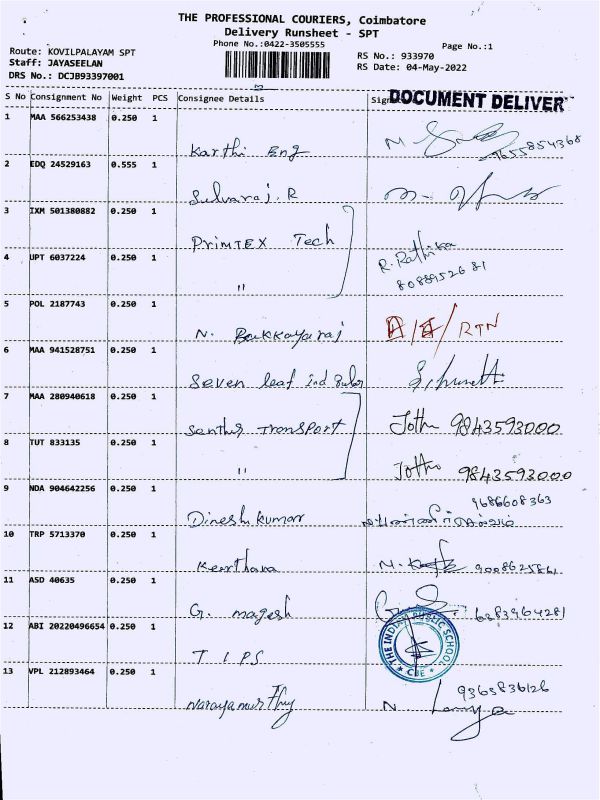 THE PROFESSIONAL COURIERS, Coimbatore
Delivery Runsheet - SPT
Phone No.:0422-3505555
Page No.:1
Route: KOVILPALAYAM SPT
Staff: JAYASEELAN
DRS No.: DCJB93397001
RS No.: 933970
RS Date: 04-May-2022
S No Consignment No Weight PCS Consignee Details
DOCUMENT DELIVER
1 MAA 566253438 0.250 1
Karthi Eng 9655854368
2 EDQ 24529163 0.555 1
Selvaraj. R
3 IXM 501380882 0.250 1
PRIMTEX Tech
4 UPT 6037224 0.250 1
R. Rathika
" 8088952681
5 POL 2187743 0.250 1
N. Bakkayaraj RTN
6 MAA 941528751 0.250 1
Seven leaf
7 MAA 280940618 0.250 1
Transport Jothi 9843593000
8 TUT 833135 0.250 1
" Jothi 9843593000
9 NDA 904642256 0.250 1
9686608363
Dinesh kumar
10 TRP 5713370 0.250 1
Keerthana 9008625861
11 ASD 40635 0.250 1
G. magesh 6383964281
12 ABI 20220496654 0.250 1
T I P S
THE INDIAN PUBLIC SCHOOL
CBE
13 VPL 212893464 0.250 1
9363836126
Narayamurthy N